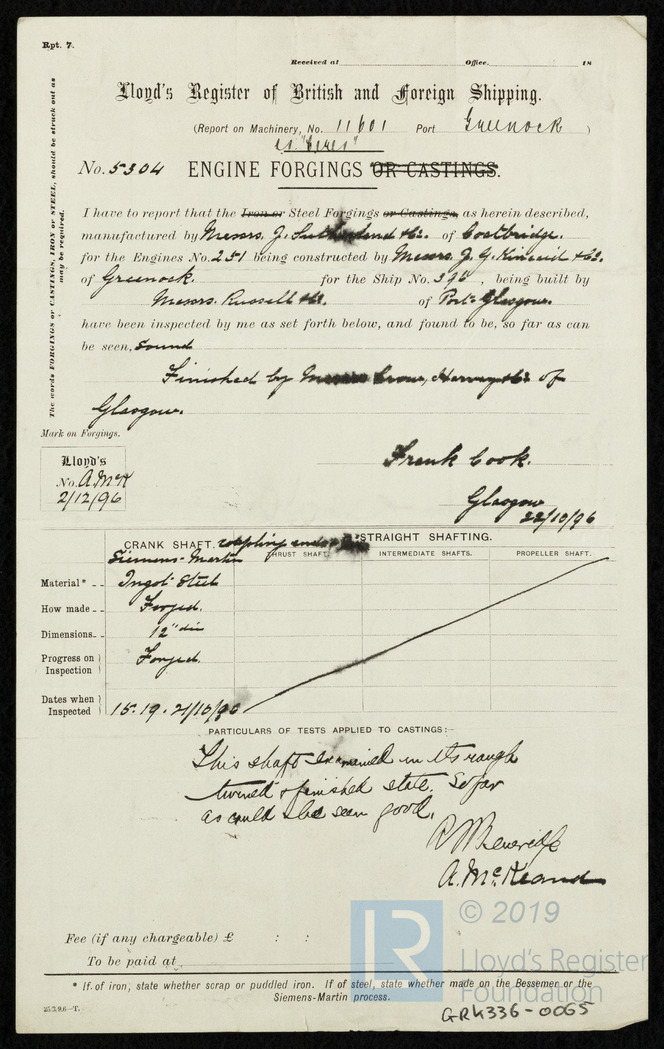 Rpt. 7.
Received at Office. 18
Lloyd's Register of British and Foreign Shipping.
(Report on Machinery, No. 11601 Port Greenock )
ss "Ceres"
No. 5304 ENGINE FORGINGS OR CASTINGS.
I have to report that the Iron or Steel Forgings or Castings, as herein described,
manufactured by Messrs. J. Sutherland & Co. of Coatbridge.
for the Engines No. 251 being constructed by Messrs. J. G. Kincaid & Co.
of Greenock. for the Ship No. 396, being built by
Messrs. Russell & Co. of Port-Glasgow.
have been inspected by me as set forth below, and found to be, so far as can
be seen, Sound
Finished by Messrs Crow, Harvey & Co of
Glasgow.
The words FORGINGS or CASTINGS, IRON or STEEL, should be struck out as
may be required.
Mark on Forgings.
Lloyd's
No. A.McK
2/12/96
Frank Cook.
Glasgow
22/10/96
CRANK SHAFT. coupling STRAIGHT SHAFTING.
THRUST SHAFT. INTERMEDIATE SHAFTS. PROPELLER SHAFT.
Siemens-Martin
Material* Ingot Steel
How made Forged.
Dimensions 12" dia
Progress on Inspection Forged.
Dates when Inspected 15.19.21/10/96
PARTICULARS OF TESTS APPLIED TO CASTINGS:-
This shaft examined in its rough
turned & finished state. So far
as could be seen good.
A. McKeand
Fee (if any chargeable) £ : :
To be paid at
* If of iron, state whether scrap or puddled iron. If of steel, state whether made on the Bessemer or the
Siemens-Martin process.
25/3/96-T.
LR
© 2019
Lloyd's Register
Foundation
GRK336-0065